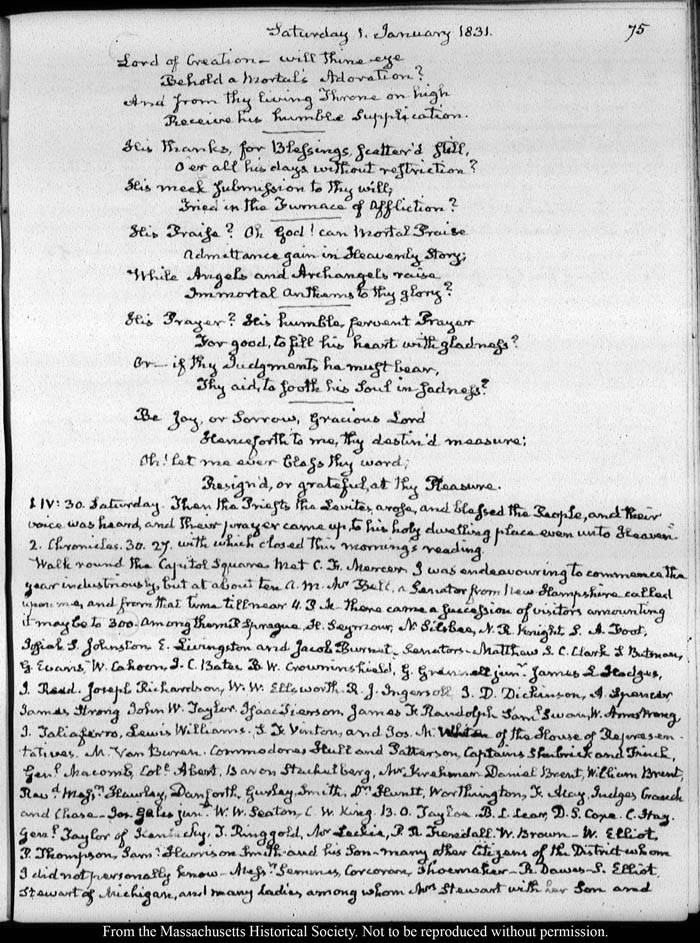 Saturday 1. January 1831.
75
Lord of Creation — will thine eye
Behold a Mortal's Adoration?
And from thy living Throne on high
Receive his humble Supplication.
His thanks, for Blessings, scatter'd still,
O'er all his days without restriction?
His meek Submission to thy will,
Tried in the Furnace of Affliction?
His Praise? Oh God! can Mortal Praise
Admittance gain in Heavenly Story;
While Angels and Archangels raise
Immortal Anthems to thy glory?
His Prayer? His humble, fervent Prayer
For good, to fill his heart with gladness?
Or — if thy Judgments he must bear,
Thy aid, to sooth his Soul in sadness?
Be Joy, or Sorrow, Gracious Lord
Henceforth to me, thy destin'd measure;
Oh! let me ever bless thy word;
Resign'd, or grateful, at thy Pleasure.
IV: 30. Saturday. Then the Priests the Levites arose, and blessed the People, and their
voice was heard, and their prayer came up to his holy dwelling place even unto Heaven
2. Chronicles. 30. 27. with which closed this morning's reading.
Walk round the Capitol Square Met C. F. Mercer. I was endeavouring to commence the
year industriously, but at about ten A.M. Mr Bell, a Senator from New Hampshire called
upon me, and from that time till near 4. P.M. there came a succession of visitors amounting
it may be to 300. among them P. Sprague, H. Seymour, N. Silsbee, N. R. Knight S. A. Foot,
Josiah S. Johnston E. Livingston and Jacob Burnet. Senators — Matthew S. C. Clark S Butman,
G. Evans, W. Cahoon, I. C. Bates B. W. Crowninshield, G. Grennell junr. James L Hodges,
J. Reed. Joseph Richardson, W. W. Ellsworth. R. J. Ingersoll J. D. Dickinson, A. Spencer
James Strong John W. Taylor. Isaac Pierson, James F. Randolph Saml. Swan, W. Armstrong
J. Taliaferro, Lewis Williams. S. F. Vinton, and Jos. M. White of the House of Represen-
tatives. M. Van Buren. Commodores Hull and Patterson, Captains Shubrick and Finch,
Genl. Macomb, Coll. Abert, Baron Stackelberg, Mr. Krehmer Daniel Brent, William Brent,
Revd. Messrs. Hawley, Danforth, Gurley, Smith, Drs. Huntt, Worthington, F. May, Judges Cranch
and Chase — Jos. Gales junr. W. W. Seaton, C. W. King. B. O. Tayloe. B. L. Lear, D. S. Coye. C. Hay.
Genl. Taylor of Kentucky, T. Ringgold, Mr Leckie, P. R. Fendall. W. Brown — W. Elliot,
P. Thompson, Saml. Harrison Smith and his Son — many other Citizens of the District whom
I did not personally know — Messrs. Semmes, Corcoran, Shoemaker — R. Dawes — S. Elliot,
Stewart of Michigan, and many ladies, among whom Mrs Stewart with her Son and
From the Massachusetts Historical Society. Not to be reproduced without permission.